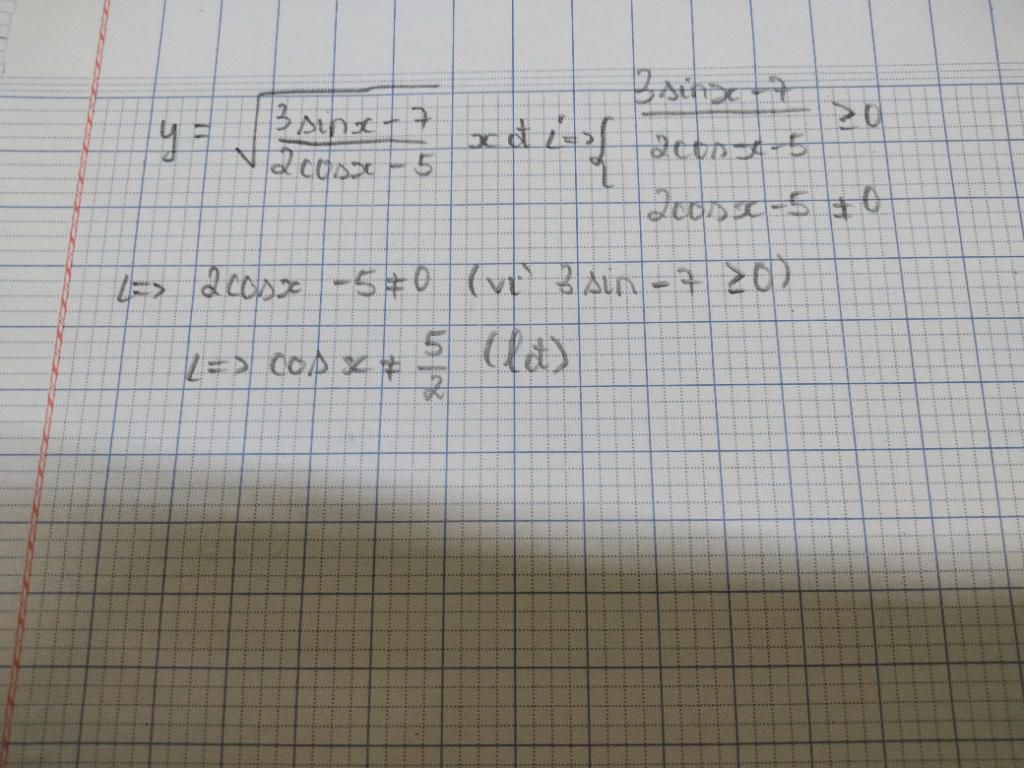 y = √((3sinx - 7)/(2cosx - 5)) xđ <=> { (3sinx - 7)/(2cosx - 5) ≥ 0
2cosx - 5 ≠ 0
<=> 2cosx - 5 ≠ 0 (vì 3 sin - 7 ≥ 0)
<=> cosx ≠ 5/2 (lđ)